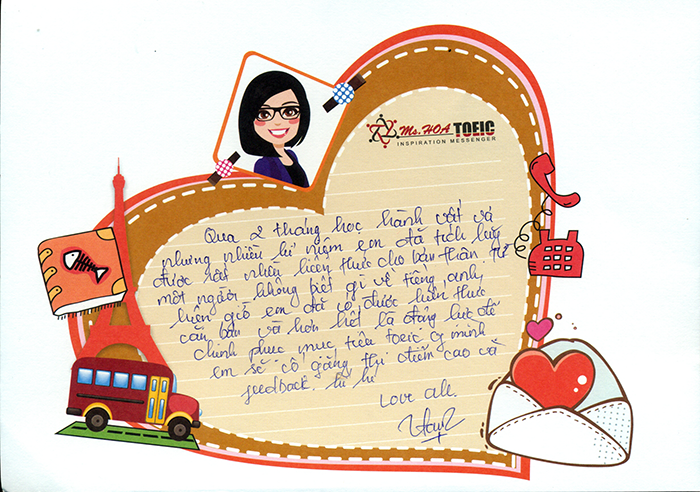 Ms. HOA TOEIC
INSPIRATION MESSENGER
Qua 2 tháng học hành vất vả
nhưng nhiều kỉ niệm em đã tích lũy
được rất nhiều kiến thức cho bản thân từ
một người không biết gì về tiếng anh
hiện giờ em đã có được kiến thức
căn bản và hơn hết là động lực để
chinh phục mục tiêu toeic of mình
em sẽ cố gắng thi điểm cao và
feedback. hì hì
Love all.